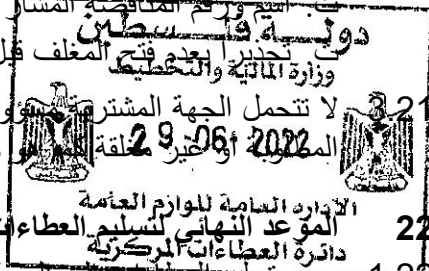 ب اسم ورقم المناقصة المشار
دولة فلسطين
ت تحذيرا بعدم فتح المغلف قبل
وزارة المالية والتخطيط
3.21 لا تتحمل الجهة المشترية مسؤو
29.06.2022
أو غير مغلقة
الادارة العامة للوازم العامة
22 الموعد النهائي لتسليم العطاءات
دائرة العطاءات المركزية